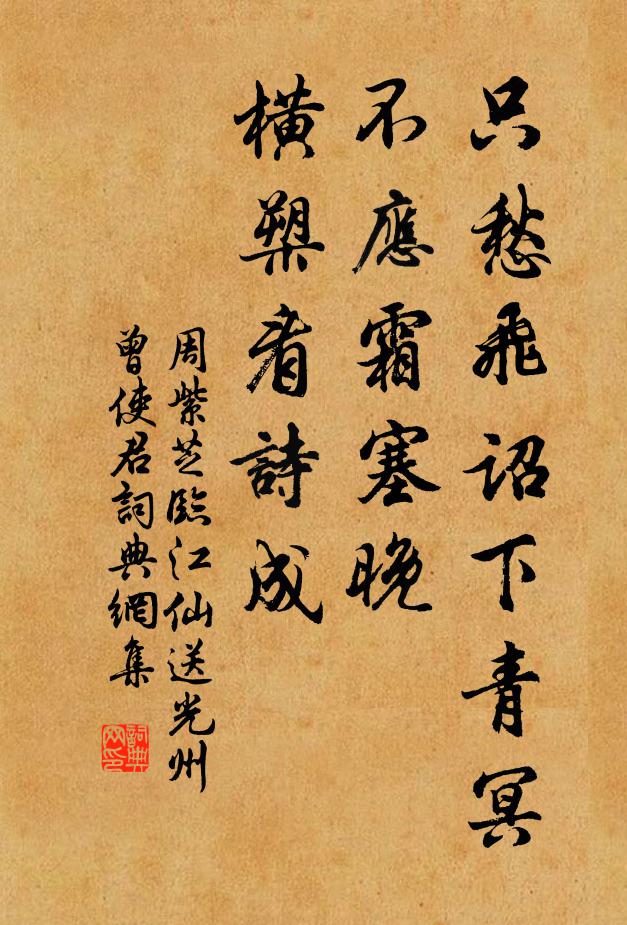 只愁飛詔下青冥
不應霜塞晚
橫槊看詩成
周紫芝臨江仙送光州
曾使君詞典網集
詞典
网印